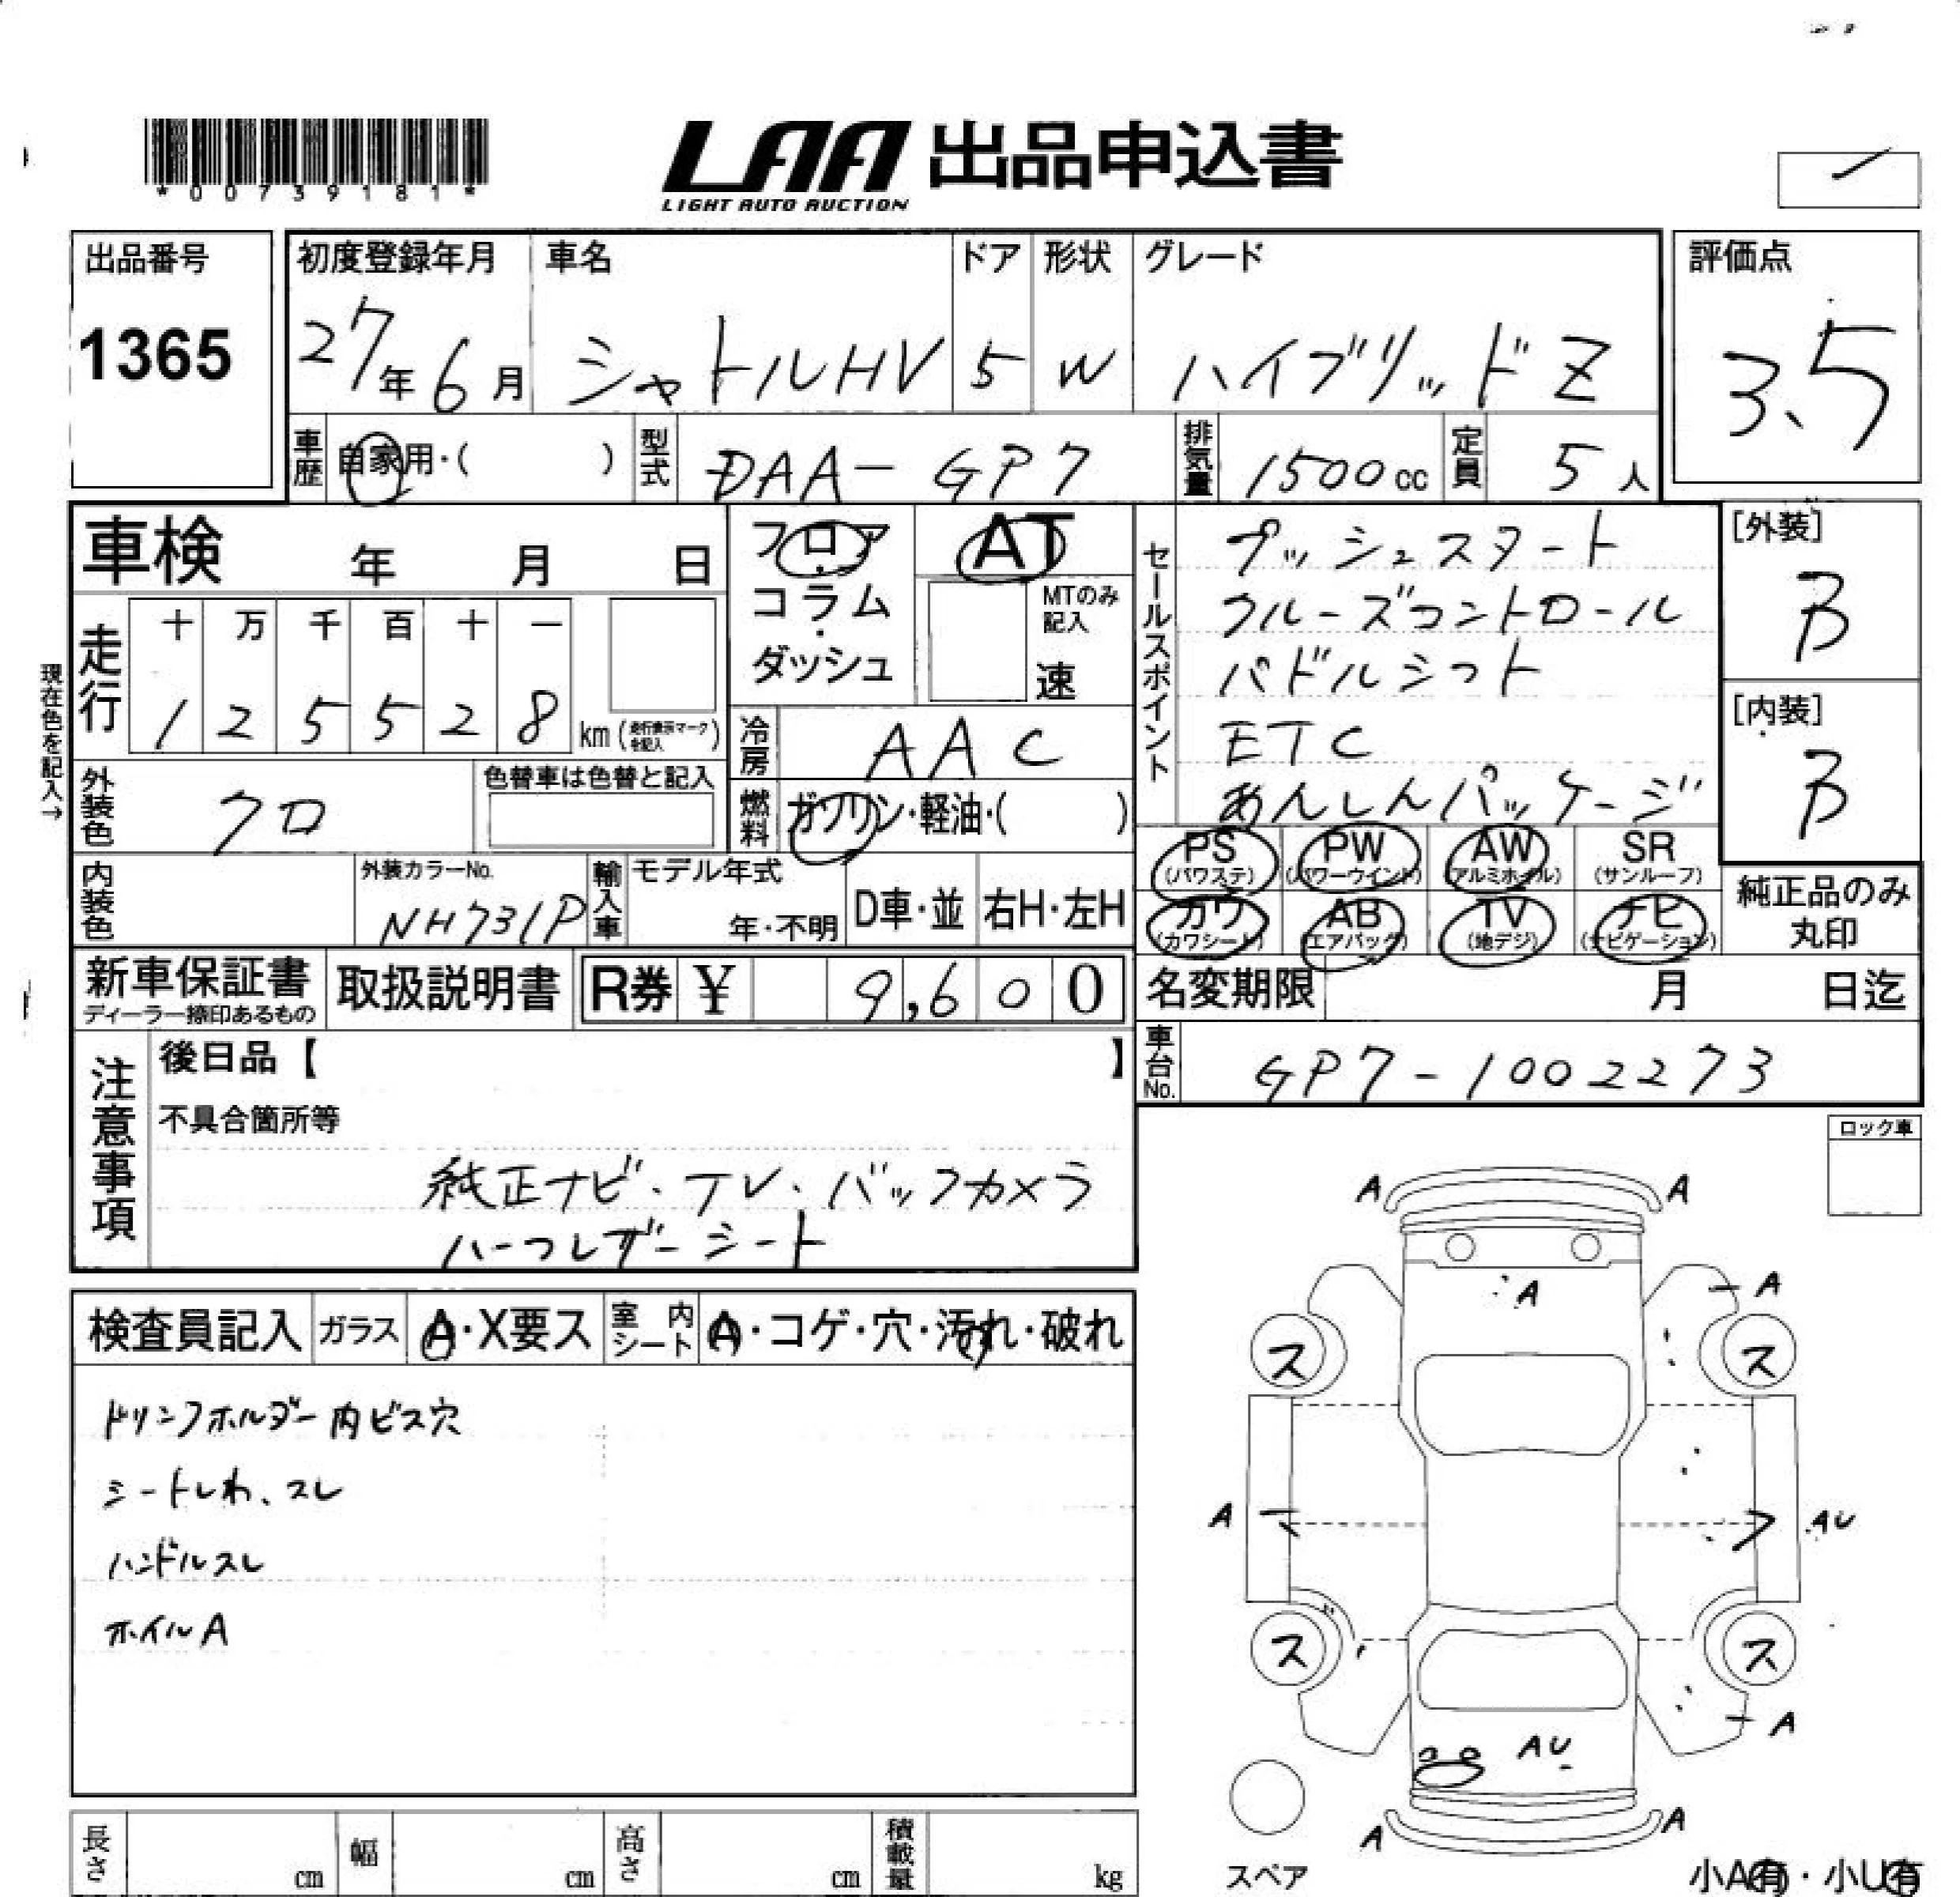 *00739181*
LAA 出品申込書
LIGHT AUTO AUCTION
出品番号
1365
初度登録年月
27年6月
車名
シャトルHV
ドア
5
形状
W
グレード
ハイブリッドZ
評価点
3.5
車歴 自家用・( )
型式 DAA-GP7
排気量 1500cc
定員 5人
車検 年 月 日
フロア・コラム・ダッシュ
AT
MTのみ記入
速
走行 十 万 千 百 十 一
1 2 5 5 2 8 km (走行表示マークを記入)
現在色を記入→
冷房 AAC
外装色 クロ
色替車は色替と記入
燃料 ガソリン・軽油・( )
内装色
外装カラーNo.
NH731P
輸入車
モデル年式
年・不明
D車・並
右H・左H
セールスポイント
プッシュスタート
クルーズコントロール
パドルシフト
ETC
あんしんパッケージ
[外装]
B
[内装]
B
PS (パワステ)
PW (パワーウインド)
AW (アルミホイル)
SR (サンルーフ)
カワ (カワシート)
AB (エアバッグ)
TV (地デジ)
ナビ (ナビゲーション)
純正品のみ
丸印
新車保証書
ディーラー捺印あるもの
取扱説明書
R券 ¥ 9,600
名変期限 月 日迄
車台No. GP7-1002273
注意事項
後日品【 】
不具合箇所等
純正ナビ、TV、バックカメラ
ハーフレザーシート
ロック車
検査員記入 ガラス A・X要ス 室内シート A・コゲ・穴・汚れ・破れ
ドリンクホルダー内ビス穴
シートしわ、スレ
ハンドルスレ
ホイルA
A A
A A
ス ス
A AU
ス ス
A
AU
A A
スペア
小A有・小U有
長さ cm 幅 cm 高さ cm 積載量 kg